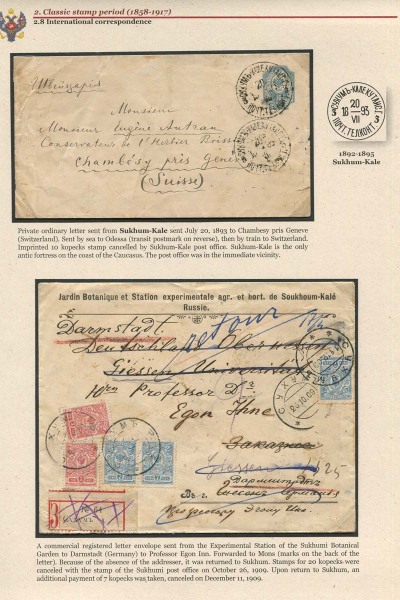 2. Classic stamp period (1858-1917)
2.8 International correspondence
Швейцарія
Monsieur
Monsieur Eugène Autran
Conservateur de l'Herbier Boissier
Chambésy près Genève
(Suisse)
СУХУМЪ-КАЛЕ КУТАИС. Г.
20
18 93
VII
3 3
ПОЧТ. ТЕЛ. КОНТ.
1892-1895
Sukhum-Kale
Private ordinary letter sent from Sukhum-Kale sent July 20, 1893 to Chambesy pris Geneve
(Switzerland). Sent by sea to Odessa (transit postmark on reverse), then by train to Switzerland.
Imprinted 10 kopecks stamp cancelled by Sukhum-Kale post office. Sukhum-Kale is the only
antic fortress on the coast of the Caucasus. The post office was in the immediate vicinity.
Jardin Botanique et Station experimentale agr. et hort. de Soukhoum-Kalé
Russie.
retour
Darmstadt.
Deutschland
Giessen Universität
Professor Dr.
Egon Ihne
Заказное
Giessen
Дармштадтъ
Въ г.
Профессору Эгону Ине.
A commercial registered letter envelope sent from the Experimental Station of the Sukhumi Botanical
Garden to Darmstadt (Germany) to Professor Egon Inn. Forwarded to Mons (marks on the back of the
letter). Because of the absence of the addresser, it was returned to Sukhum. Stamps for 20 kopecks were
canceled with the stamp of the Sukhumi post office on October 26, 1909. Upon return to Sukhum, an
additional payment of 7 kopecks was taken, canceled on December 11, 1909.